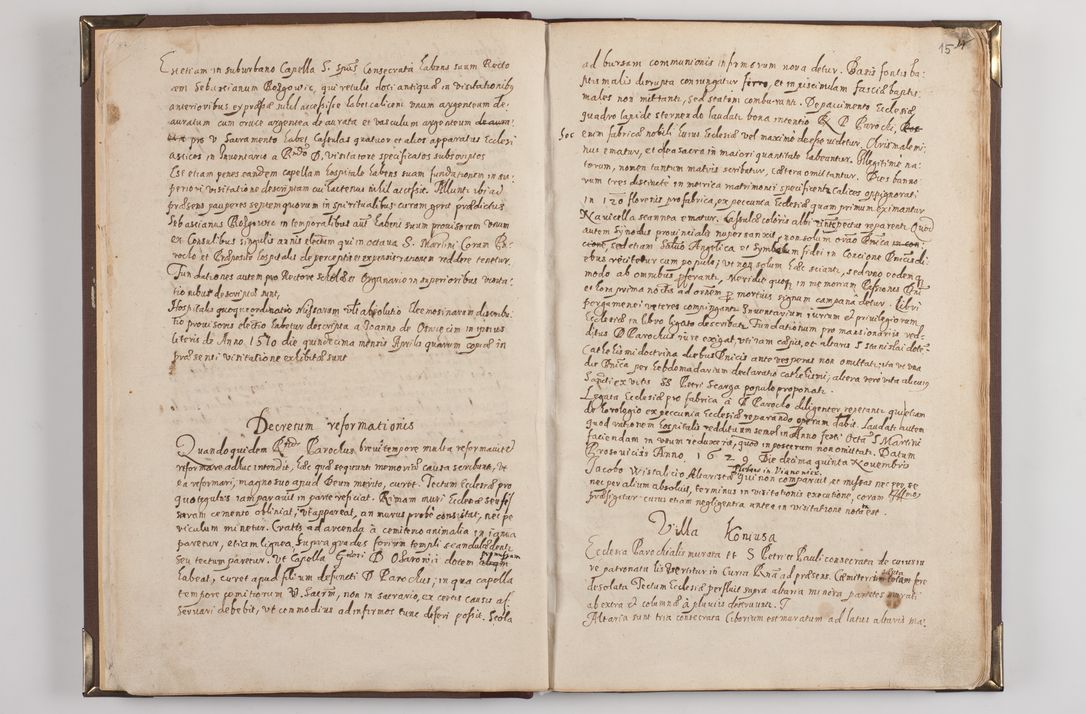 Est etiam in suburbano Capella S. Spūs Consecrata habens suum Recto
rem Sebastianum Rożgowic, qui retulit doti antiquæ in visitationib9
anterioribus expressæ nihil accessisse habet calicem vnum argenteum de
auratum cum cruce argentea deaurata et vasculum argenteum
pro V. Sacramento habet Casulas quatuor et alios apparatus Ecclesi
asticos in Inventario a Rndo D. visitatore specificatos subscriptos
Est etiam penes eandem capellam hospitale habens suam fundationem in su
periori visitatione descriptam cui hactenus nihil accessit. Aluntur ibi ad
præsens pauperes septem quorum in spiritualibus curam gerit prædictus
Sebastianus Rożgowic in temporalibus aūt habent suum prouisorem vnum
ex Consulibus singulis annis electum qui in octaua S. Martini coram Pa
rocho et Præposito hospitalis de perceptis et expensis rationem reddere tenetur.
Fundationes autem pro Rectore scholæ et Organario in superioribus visita
tionibus descriptæ sunt,
Hospitalis quoque ordinatio
tio prouisoris electio habetur descripta a Joanne de Otnuecim in ipsius
literis de Anno 1510 die quindecima mensis Aprilis quarum copiæ in
præsenti visitatione exhibitæ sunt
Decretum reformationis
Quandoquidem Rndus Parochus breui tempore multa reformauit et
reformare adhuc intendit, hæc quæ sequuntur memoriæ causa scribunt, vt
ea reformari, magno suo apud Deum merito, curet. Tectum Ecclesiæ pro
quo tegulas iam parauit in parte reficiat. Rimam muri Ecclesiæ seu fis
suram cemento obliniat, vt appareat, an murus probe consistat, nec pe
riculum minetur. Crates ad arcenda à cemiterio animalia in ianua
parentur, etiam lignea, supra gradus forium templi scandulæ
seu tectum paretur. Vt Capella Gnosi D. Ożarowii dotem
habeat, curet apud filium defuncti D. Parochus, in qua capella
tempore pomitiorum V. Sacrm, non in sacrario, ex certis causis as
seruari debebit, vt commodius ad infirmos tunc deferi possit. Stola
15
ad bursam communionis infirmorum noua detur. Basis fontis ba
ptismalis dirupta coniungatur ferro, et in piscinulam fasciæ baptis
males non mittantur, sed statim comburantur. De pauimento Ecclesiæ
quadro lapide sternendo laudatur bona intentio R. D. Parochi,
soc erum fabricæ nobili huius Ecclesiæ vel maxime deesse videtur. Chrismale mi
nus ematur, et olea sacra in maiori quantitate habeantur. Illegitime na
torum, nomen tantum matris scribatur, cætera omittantur. Dies banno
rum tres distincte in metrica matrimonii specificentur calices oppignorati
in 120 florenis pro fabrica, ex pecunia Ecclesiæ quam primum eximantur
Nauicella stannea ematur. Casulæ coloris albi reparentur. Quod
autem Synodus prouincialis nuper sanxit, non solum orāo Dnica
sed etiam Salut͞o Angelica vt Symbolum fidei in Concione Dnicis di
ebus recitetur cum populo; vt non solum hæc sciant, sed vno eodemq
modo ab omnibus proferant. Meridie quoq in memoriam Passionis Dni
et hora prima noctis ad orānem pro mortuis signum campanæ detur. Libri
pergamenei veteres compingantur. Inuentarium iurium et priuilegiorum
Ecclesiæ in libro ligato describatur. Fundationum pro mansionariis red
ditus D. Parochus iure exigat, vti iam cæpit, et altaris S. Stanislai dote
Cathesismi doctrina diebus Dnicis ante vesperas non omittatur, ita vt vna
die Dnica per hebdomadarium declaratio cathesismi, altera vero vita alicuius
Sancti ex vitis SS Petri Scarga populo proponatur.
Legata Ecclesiæ pro fabrica à D. Parocho diligenter repetantur quietiam
de horologio ex peccunia Ecclesiæ reparando operam dabit. Laudatur autem
quod rationem hospitalis reddituum semel in Anno festi Octa S. Martini
faciendam in vsum reduxerit, quod in posterum non omittatur. Datum
Prosouicis Anno 1629 Die decima quinta Nouembris
Jacobo Wistalicio Altaristæ qui non comparuit et missas nec per se
nec per alium absoluit, terminus in visitationis executione, coram
præfigitur cuius etiam negligentia antea in visitatione notata est.
Villa Koniusa
Ecclesia Parochialis murata tt S Petri et Pauli consecrata de cuius iu
re patronatus lis vertitur in Curia Rnā ad præsens. Cæmiterium septa totam fere
desolata Tectum Ecclesiæ perfluit supra altaria minora parietes murati
ab extra et columnæ à pluuiis destruuntur.
Altaria sunt tria consecrata Ciborium est muratum ad latus altaris ma: